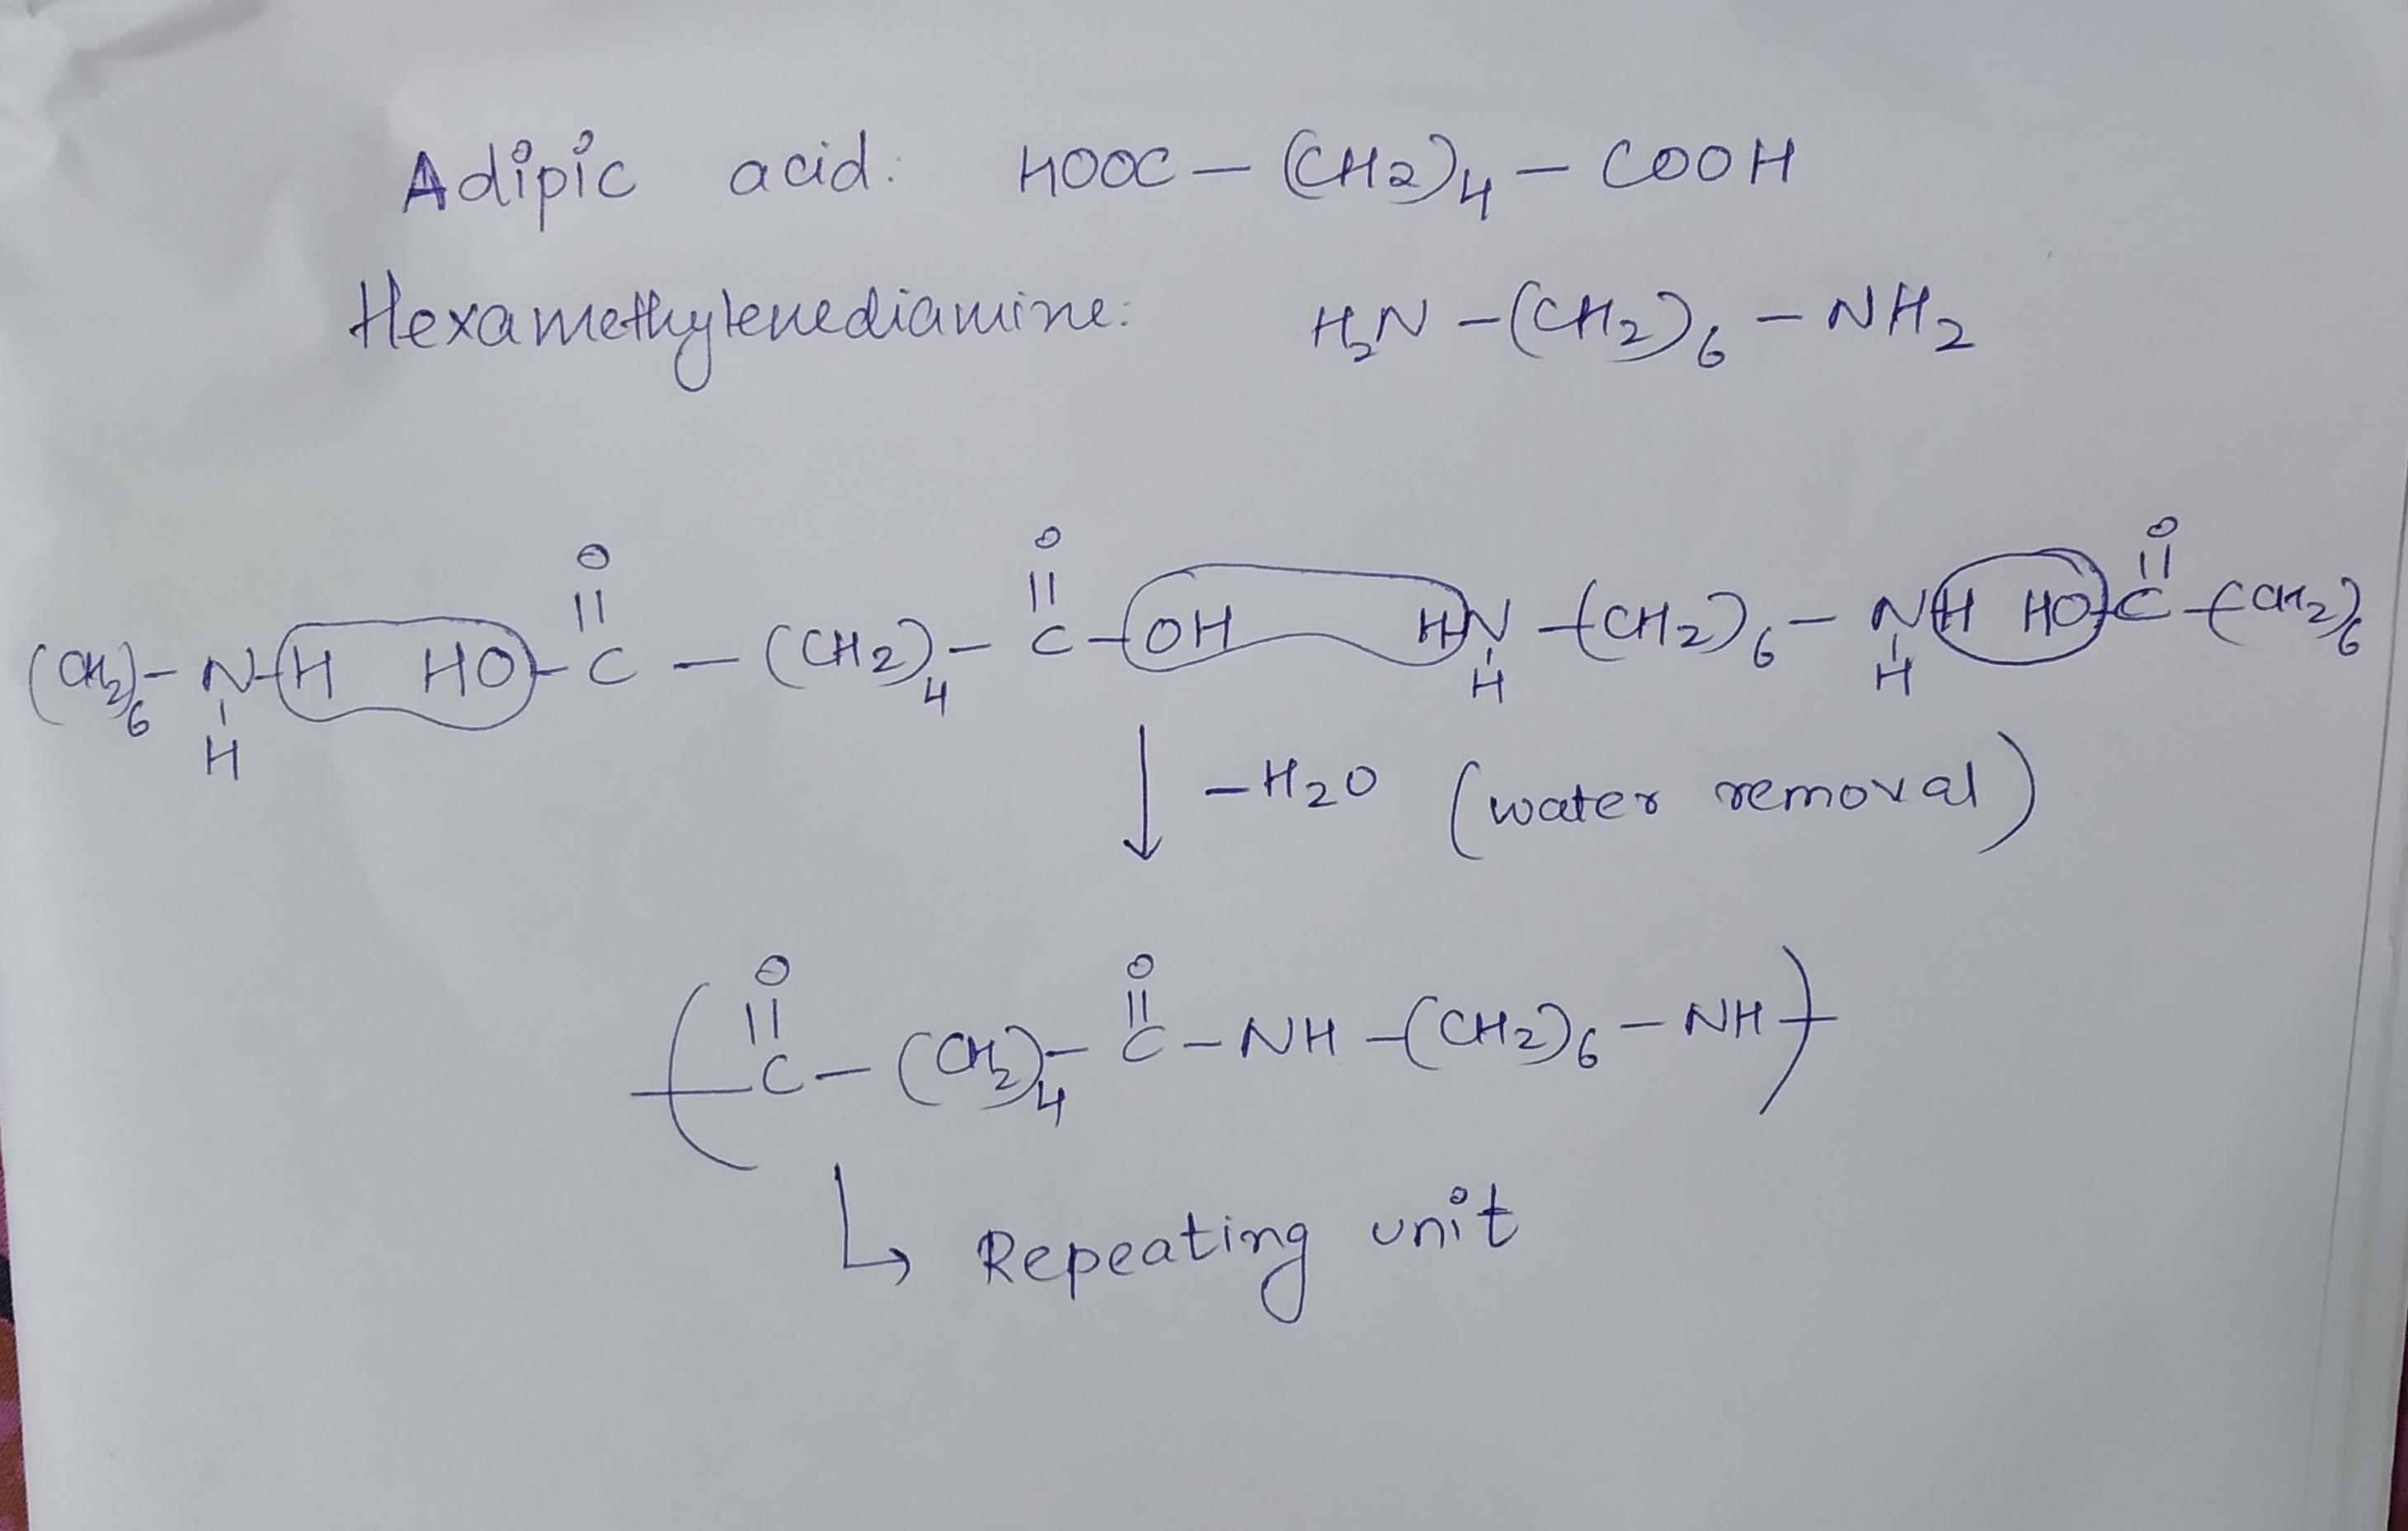 Adipic acid: HOOC – (CH2)4 – COOH
Hexamethylenediamine: H2N – (CH2)6 – NH2
O O O
|| || ||
(CH2)6 – N – H HO – C – (CH2)4 – C – OH HN – (CH2)6 – NH HO – C – (CH2)6
H H H
– H2O (water removal)
O O
|| ||
( C – (CH2)4 – C – NH – (CH2)6 – NH )
↳ Repeating unit